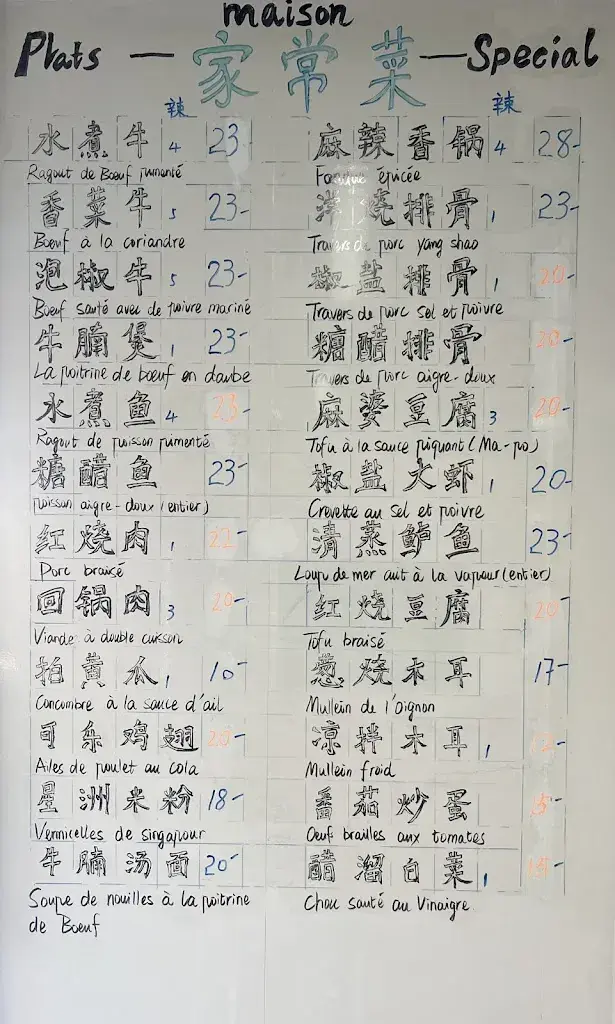 maison
Plats — 家常菜 — Special
辣
水煮牛 4 23
Ragout de Bœuf pimenté
香菜牛 5 23-
Bœuf à la coriandre
泡椒牛 5 23-
Bœuf sauté avec de poivre mariné
牛腩煲 1 23-
La poitrine de bœuf en daube
水煮鱼 4 23-
Ragout de poisson pimenté
糖醋鱼 23-
poisson aigre-doux (entier)
红烧肉 1 22-
Porc braisé
回锅肉 3 20-
Viande à double cuisson
拍黄瓜 1 10-
Concombre à la sauce d'ail
可乐鸡翅 20-
Ailes de poulet au cola
星洲米粉 18-
Vermicelles de singapour
牛腩汤面 20-
Soupe de nouilles à la poitrine
de Bœuf
辣
麻辣香锅 4 28-
épicée
烧排骨 1 23-
Travers de porc yang shao
椒盐排骨 1 20-
Travers de porc sel et poivre
糖醋排骨 20-
Travers de porc aigre-doux
麻婆豆腐 3 20-
Tofu à la sauce piquant (Ma-po)
椒盐大虾 1 20-
Crevette au sel et poivre
清蒸鲈鱼 23-
Loup de mer cuit à la vapeur (entier)
红烧豆腐 20-
Tofu braisé
葱烧木耳 17-
Mullein de l'Oignon
凉拌木耳 1
Mullein froid
番茄炒蛋
Œuf brailles aux tomates
醋溜白菜 1
Chou sauté au Vinaigre.